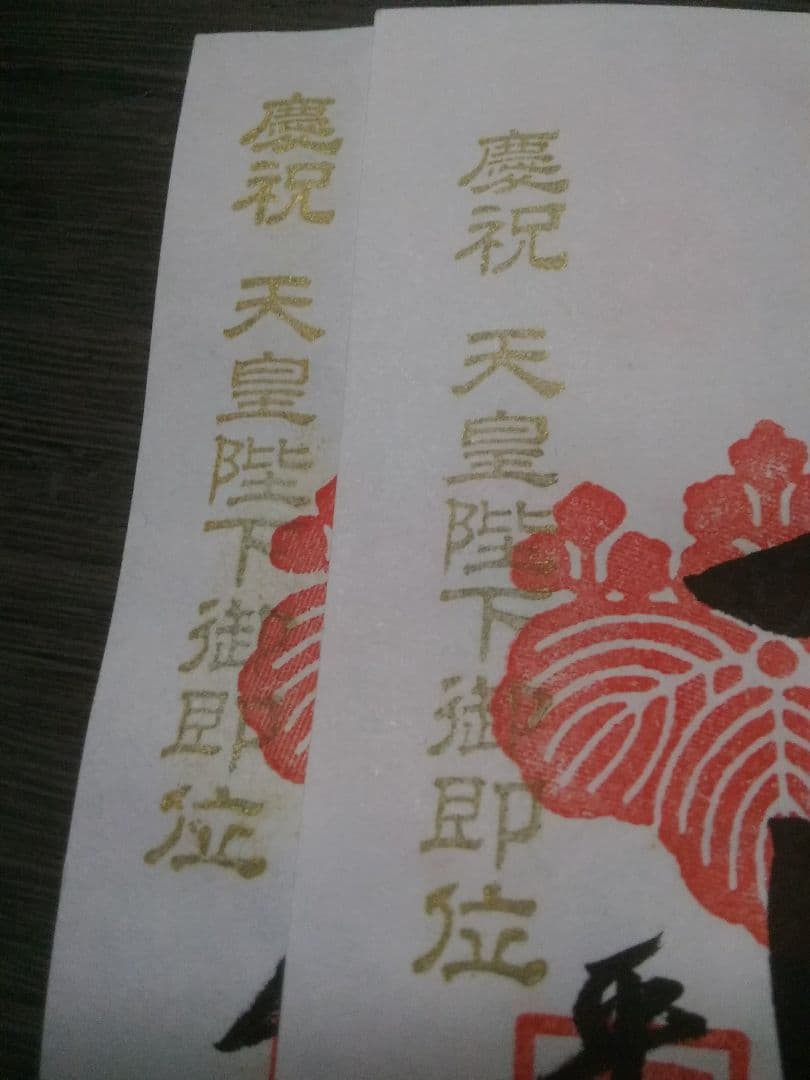 慶祝 天皇陛下御即位
慶祝 天皇陛下御即位
平